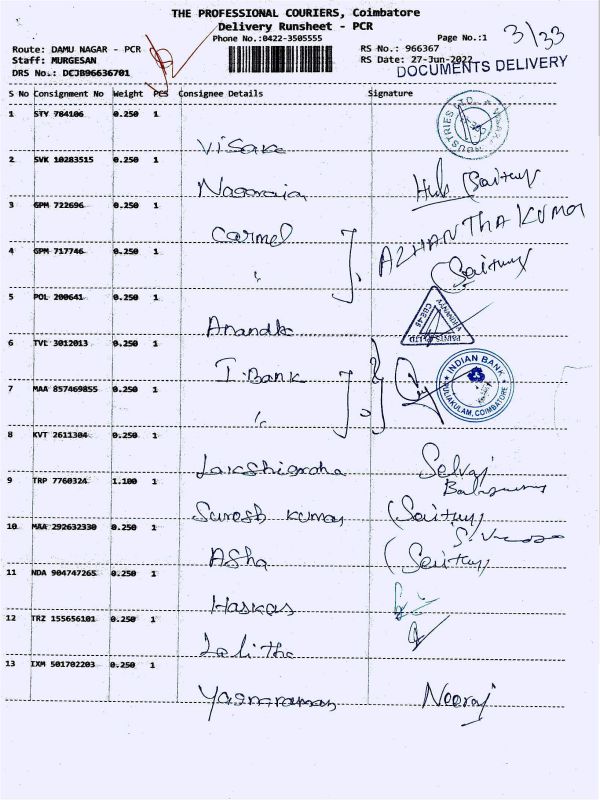 THE PROFESSIONAL COURIERS, Coimbatore
Delivery Runsheet - PCR
Phone No.:0422-3505555
Page No.:1
3/33
Route: DAMU NAGAR - PCR
RS No.: 966367
Staff: MURGESAN
RS Date: 27-Jun-2022
DRS No.: DCJB96636701
DOCUMENTS DELIVERY
S No Consignment No Weight PCS Consignee Details Signature
1 STY 784106 0.250 1
2 SVK 10283515 0.250 1
Nagaraja
3 GPM 722696 0.250 1
Carmel
4 GPM 717746 0.250 1
"
5 POL 200641 0.250 1
6 TVL 3012013 0.250 1
I.Bank
INDIAN BANK
PULIAKULAM, COIMBATORE
7 MAA 857469855 0.250 1
"
8 KVT 2611304 0.250 1
Selvaj
9 TRP 7760324 1.100 1
Suresh Kumar
10 MAA 292632330 0.250 1
Asha
11 NDA 904747265 0.250 1
Haskas
12 TRZ 155656101 0.250 1
Lalitha
13 IXM 501702203 0.250 1
Neeraj